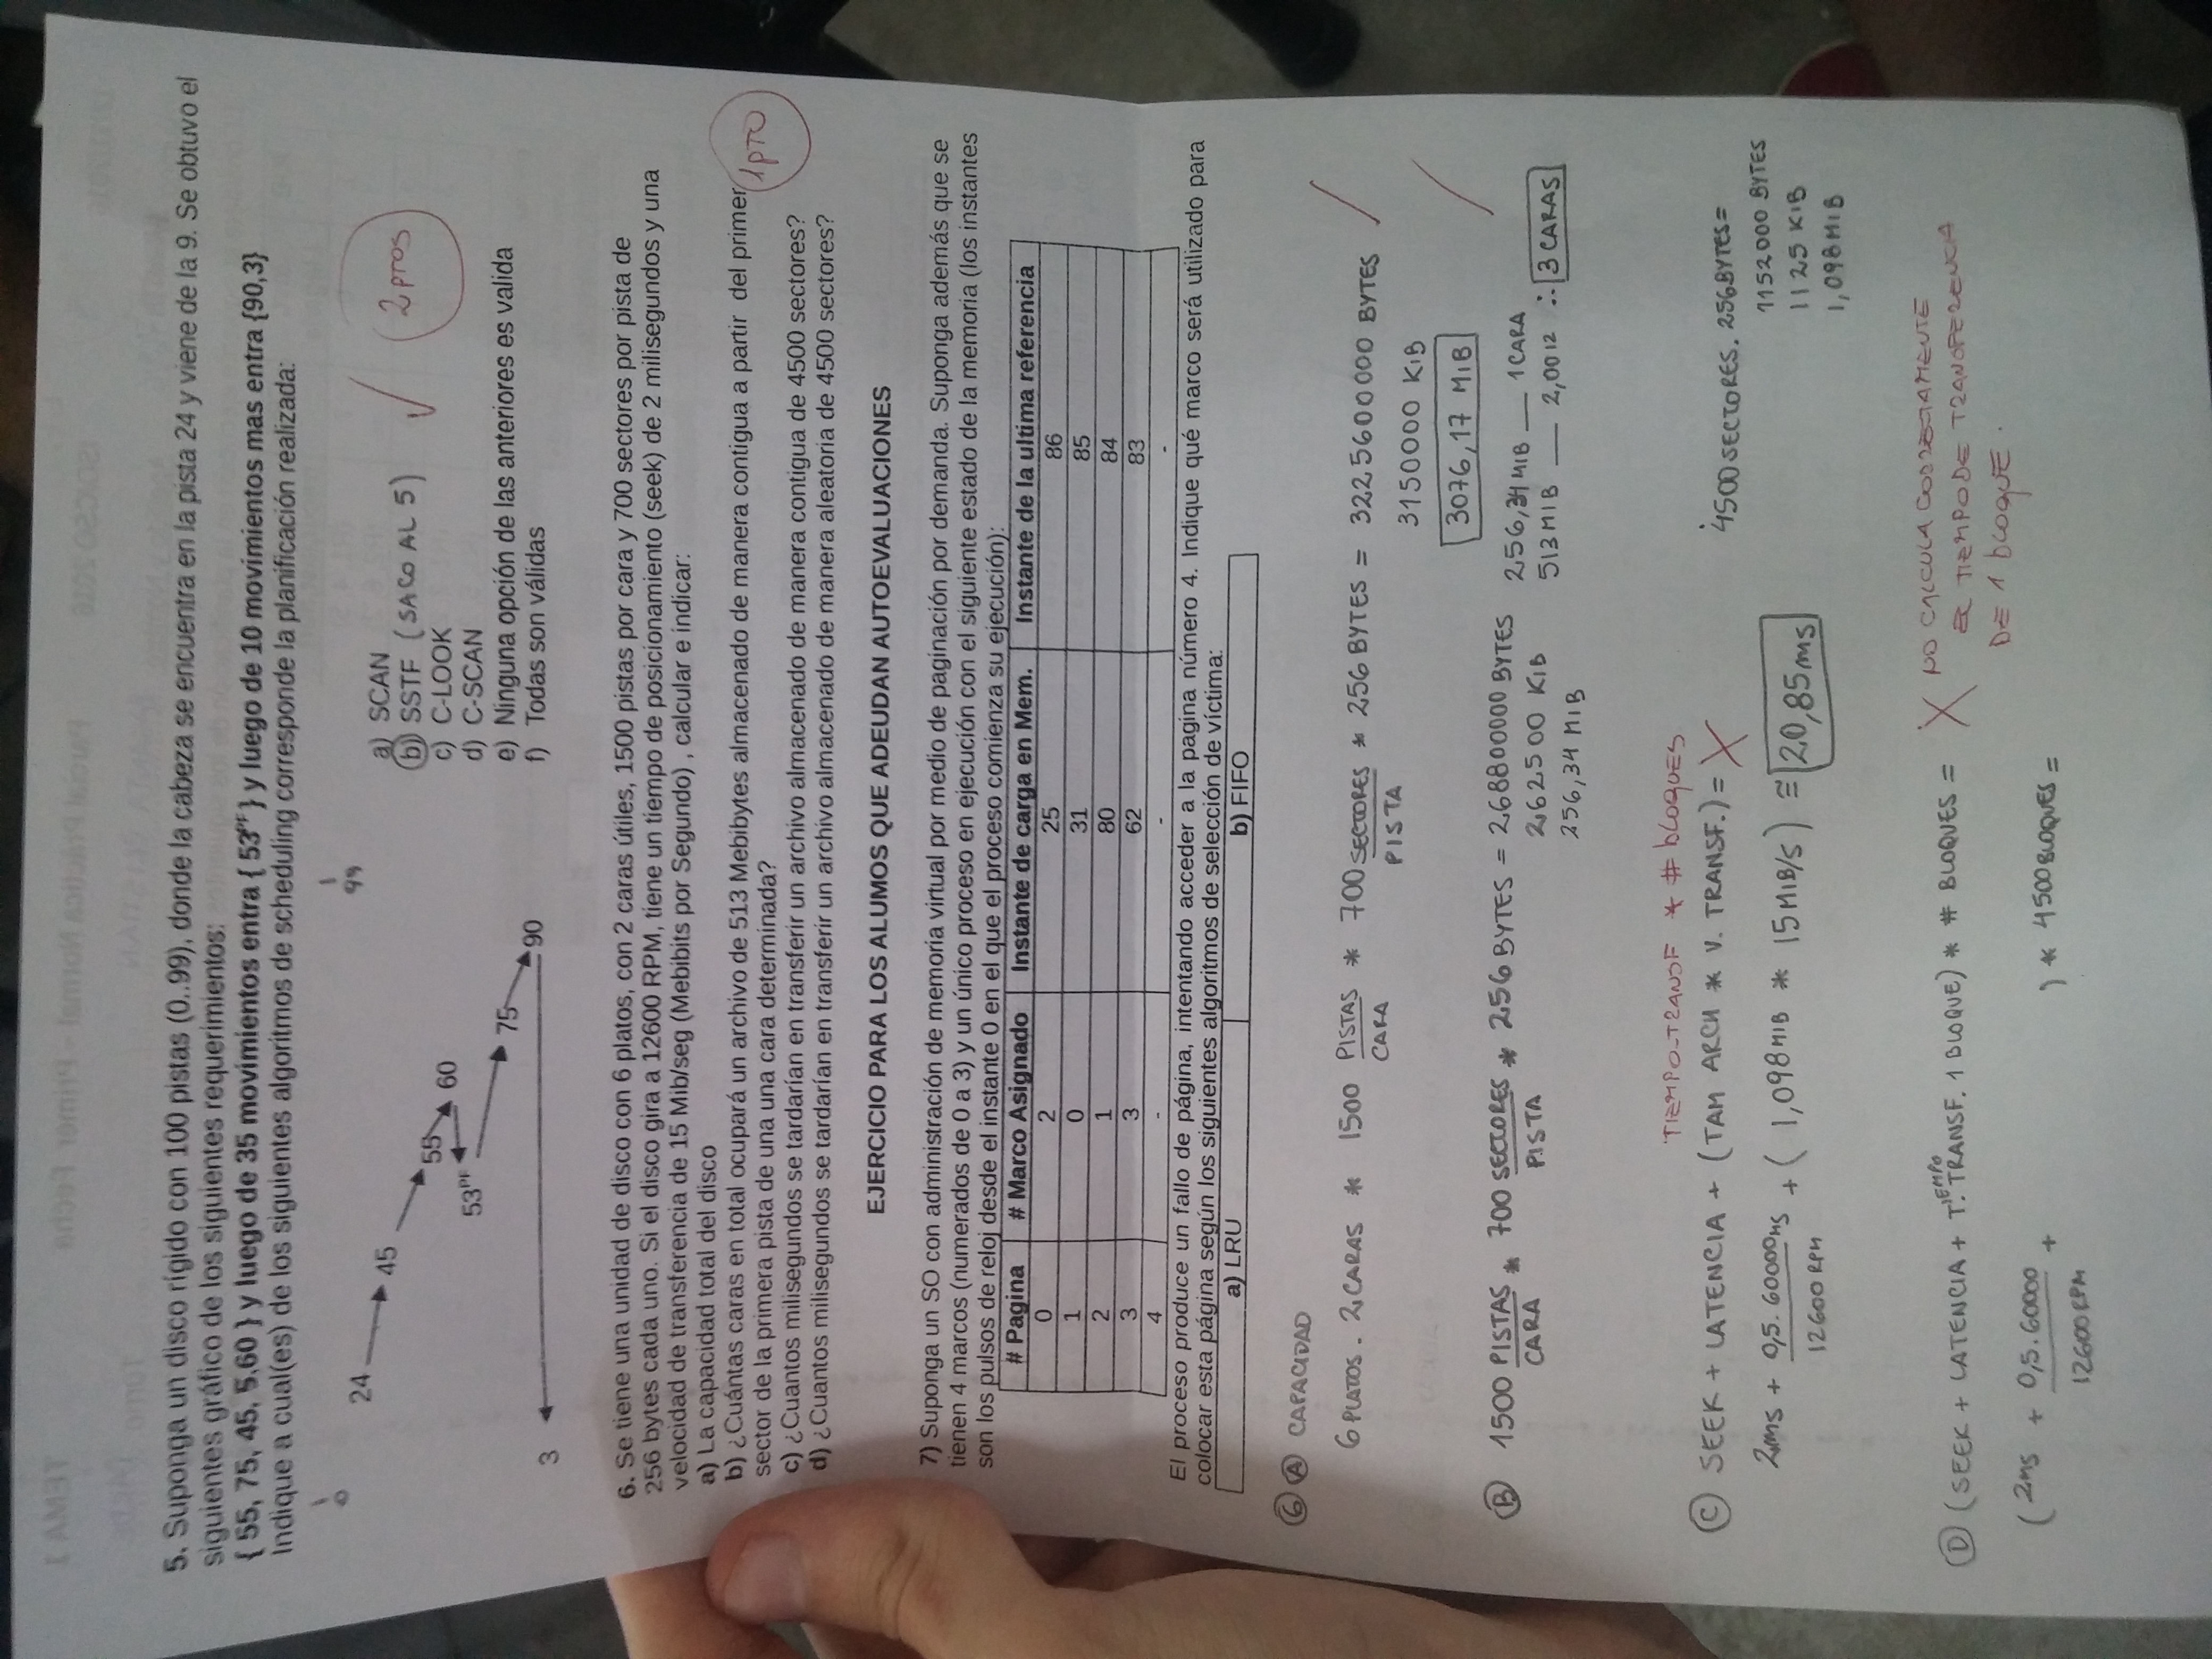 5. Suponga un disco rígido con 100 pistas (0..99), donde la cabeza se encuentra en la pista 24 y viene de la 9. Se obtuvo el
siguientes gráfico de los siguientes requerimientos:
{ 55, 75, 45, 5,60 } y luego de 35 movimientos entra { 53PF } y luego de 10 movimientos mas entra {90,3}
Indique a cual(es) de los siguientes algoritmos de scheduling corresponde la planificación realizada:
0
99
24
45
55
60
53PF
75
90
3
a) SCAN
b) SSTF (SACO AL 5)
c) C-LOOK
d) C-SCAN
e) Ninguna opción de las anteriores es valida
f) Todas son válidas
2 ptos
6. Se tiene una unidad de disco con 6 platos, con 2 caras útiles, 1500 pistas por cara y 700 sectores por pista de
256 bytes cada uno. Si el disco gira a 12600 RPM, tiene un tiempo de posicionamiento (seek) de 2 milisegundos y una
velocidad de transferencia de 15 Mib/seg (Mebibits por Segundo) , calcular e indicar:
a) La capacidad total del disco
b) ¿Cuántas caras en total ocupará un archivo de 513 Mebibytes almacenado de manera contigua a partir del primer
sector de la primera pista de una una cara determinada?
1 PTO
c) ¿Cuantos milisegundos se tardarían en transferir un archivo almacenado de manera contigua de 4500 sectores?
d) ¿Cuantos milisegundos se tardarían en transferir un archivo almacenado de manera aleatoria de 4500 sectores?
EJERCICIO PARA LOS ALUMOS QUE ADEUDAN AUTOEVALUACIONES
7) Suponga un SO con administración de memoria virtual por medio de paginación por demanda. Suponga además que se
tienen 4 marcos (numerados de 0 a 3) y un único proceso en ejecución con el siguiente estado de la memoria (los instantes
son los pulsos de reloj desde el instante 0 en el que el proceso comienza su ejecución):
# Pagina # Marco Asignado Instante de carga en Mem. Instante de la ultima referencia
0 2 25 86
1 0 31 85
2 1 80 84
3 3 62 83
4 - - -
El proceso produce un fallo de página, intentando acceder a la pagina número 4. Indique qué marco será utilizado para
colocar esta página según los siguientes algoritmos de selección de víctima:
a) LRU b) FIFO
6 A CAPACIDAD
6 PLATOS . 2 CARAS * 1500 PISTAS/CARA * 700 SECTORES/PISTA * 256 BYTES = 3225600000 BYTES
3150000 KIB
3076,17 MIB
B 1500 PISTAS/CARA * 700 SECTORES/PISTA * 256 BYTES = 268800000 BYTES
262500 KIB
256,34 MIB
256,34 MIB — 1 CARA
513 MIB — 2,0012 ∴ 3 CARAS
TIEMPO-TRANSF * # bloques
C SEEK + LATENCIA + (TAM ARCH * V. TRANSF.) =
2ms + 0,5. 60000ms/12600 RPM + ( 1,098 MIB * 15 MIB/S ) ≅ 20,85 ms
4500 SECTORES. 256 BYTES =
1152000 BYTES
1125 KIB
1,098 MIB
D (SEEK + LATENCIA + TIEMPO TRANSF. 1 BLOQUE) * # BLOQUES =
NO CALCULA CORRECTAMENTE
EL TIEMPO DE TRANSFERENCIA
DE 1 bloque.
( 2ms + 0,5. 60000/12600 RPM + ) * 4500 BLOQUES =